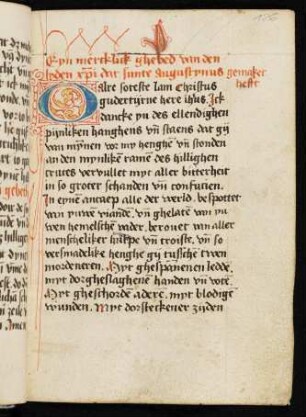 156
Eyn mercklick ghebed van den
liden xpi dat sunte augustynus gemaket
hefft
O alre soteste lam Christus
gudertirne here ihus. Ick
dancke yn des ellendighen
pijnliken hanghens vn staens dat gij
van mynen vor my henghe vn stonden
an den mynliken rame des hillighen
cruces vervullet myt aller bitterheit
in so groter schanden vn confucien.
In eyne ancaep alle der werld. bespottet
van yuwe viande. vn ghelaten van yu
wen hemelschen vader. berovet van aller
menscheliker hulppe vn troiste. vn so
versmadelike henghe gij tusschē twen
mordeneren. Myt ghespaneren ledde.
myt dorgheslaghene handen vn vote.
Myt gheschorde adere. myt blodige
wunden. Myt dorsteckener zijden